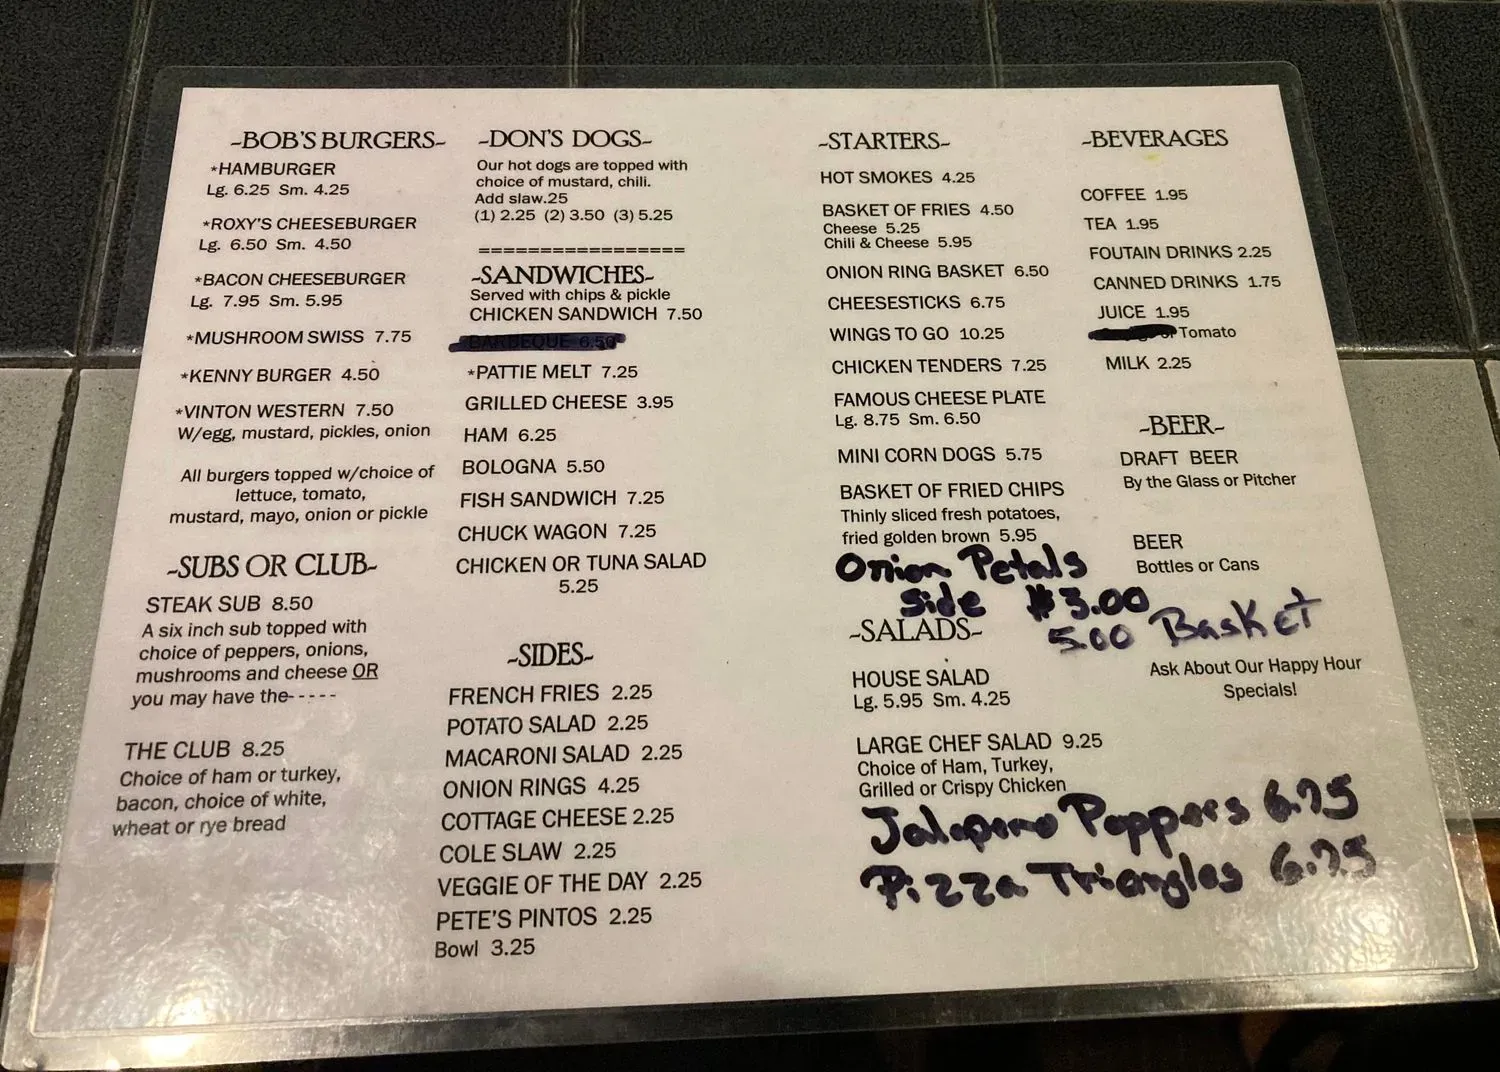 ~BOB'S BURGERS~
*HAMBURGER
Lg. 6.25 Sm. 4.25
*ROXY'S CHEESEBURGER
Lg. 6.50 Sm. 4.50
*BACON CHEESEBURGER
Lg. 7.95 Sm. 5.95
*MUSHROOM SWISS 7.75
*KENNY BURGER 4.50
*VINTON WESTERN 7.50
W/egg, mustard, pickles, onion
All burgers topped w/choice of
lettuce, tomato,
mustard, mayo, onion or pickle
~SUBS OR CLUB~
STEAK SUB 8.50
A six inch sub topped with
choice of peppers, onions,
mushrooms and cheese OR
you may have the- - - - -
THE CLUB 8.25
Choice of ham or turkey,
bacon, choice of white,
wheat or rye bread
~DON'S DOGS~
Our hot dogs are topped with
choice of mustard, chili.
Add slaw.25
(1) 2.25 (2) 3.50 (3) 5.25
=================
~SANDWICHES~
Served with chips & pickle
CHICKEN SANDWICH 7.50
BARBEQUE 6.50
*PATTIE MELT 7.25
GRILLED CHEESE 3.95
HAM 6.25
BOLOGNA 5.50
FISH SANDWICH 7.25
CHUCK WAGON 7.25
CHICKEN OR TUNA SALAD
5.25
~SIDES~
FRENCH FRIES 2.25
POTATO SALAD 2.25
MACARONI SALAD 2.25
ONION RINGS 4.25
COTTAGE CHEESE 2.25
COLE SLAW 2.25
VEGGIE OF THE DAY 2.25
PETE'S PINTOS 2.25
Bowl 3.25
~STARTERS~
HOT SMOKES 4.25
BASKET OF FRIES 4.50
Cheese 5.25
Chili & Cheese 5.95
ONION RING BASKET 6.50
CHEESESTICKS 6.75
WINGS TO GO 10.25
CHICKEN TENDERS 7.25
FAMOUS CHEESE PLATE
Lg. 8.75 Sm. 6.50
MINI CORN DOGS 5.75
BASKET OF FRIED CHIPS
Thinly sliced fresh potatoes,
fried golden brown 5.95
Onion Petals
Side $3.00
5.00 Basket
~SALADS~
HOUSE SALAD
Lg. 5.95 Sm. 4.25
LARGE CHEF SALAD 9.25
Choice of Ham, Turkey,
Grilled or Crispy Chicken
Jalapeno Poppers 6.75
Pizza Triangles 6.75
~BEVERAGES
COFFEE 1.95
TEA 1.95
FOUTAIN DRINKS 2.25
CANNED DRINKS 1.75
JUICE 1.95
or Tomato
MILK 2.25
~BEER~
DRAFT BEER
By the Glass or Pitcher
BEER
Bottles or Cans
Ask About Our Happy Hour
Specials!